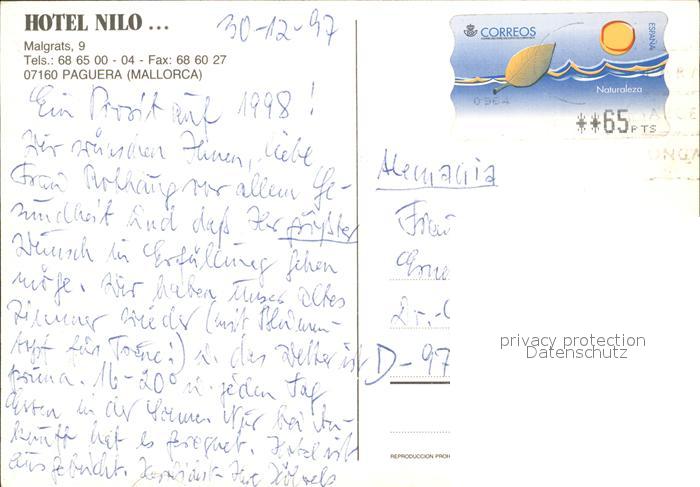 HOTEL NILO ...
30-12-97
Malgrats, 9
Tels.: 68 65 00 - 04 - Fax: 68 60 27
07160 PAGUERA (MALLORCA)
CORREOS
ESPAÑA
Naturaleza
0964
**65 PTS
Ein Prosit auf 1998!
Wir wünschen Ihnen, liebe
Frau vor allem Ge-
sundheit und daß Ihr größter
Wunsch in Erfüllung gehen
möge. Wir haben unser altes
Zimmer wieder (mit Blumen-
topf für !) u. das Wetter ist
prima. 16-20° u. jeden Tag
Essen in der Sonne. Nur bei An-
kunft hat es geregnet. Hotel ist
ausgebucht. Herzlichst - Ihre
Alemania
Frau
D-97
privacy protection
Datenschutz
REPRODUCCION PROH